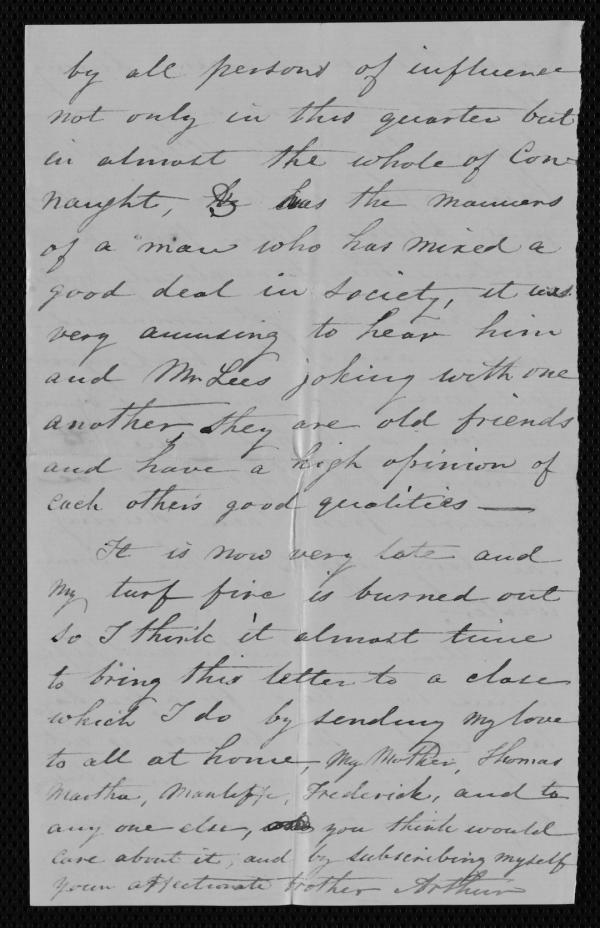 by all persons of influence
not only in this quarter but
in almost the whole of Con
naught, He has the manners
of a man who has mixed a
good deal in society, it was
very amusing to hear him
and Mr Lees joking with one
another, they are old friends
and have a high opinion of
each others good qualities —
It is now very late and
my turf fire is burned out
so I think it almost time
to bring this letter to a close
which I do by sending my love
to all at home, My Mother, Thomas
Martha, Frederick, and to
any one else, you think would
care about it, and by subscribing myself
your affectionate brother Arthur